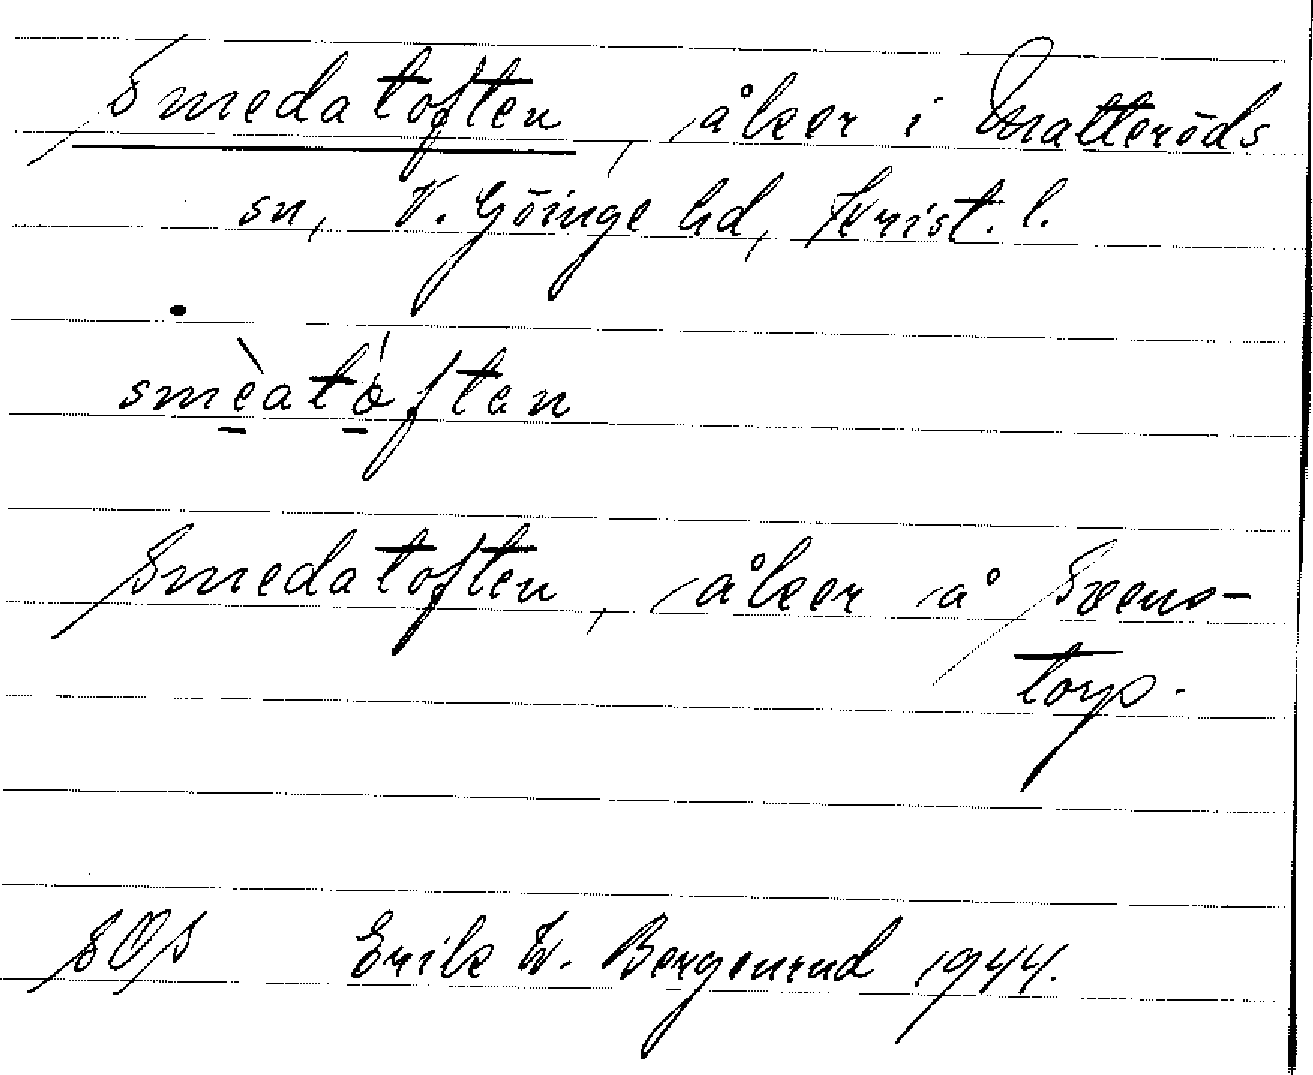 Smedatoften, åker i Matteröds
sn, V. Göinge hd, Krist. l.
smèatóften
Smedatoften, åker å Svens-
torp.
SOS Erik W. Bergenrud 1944.